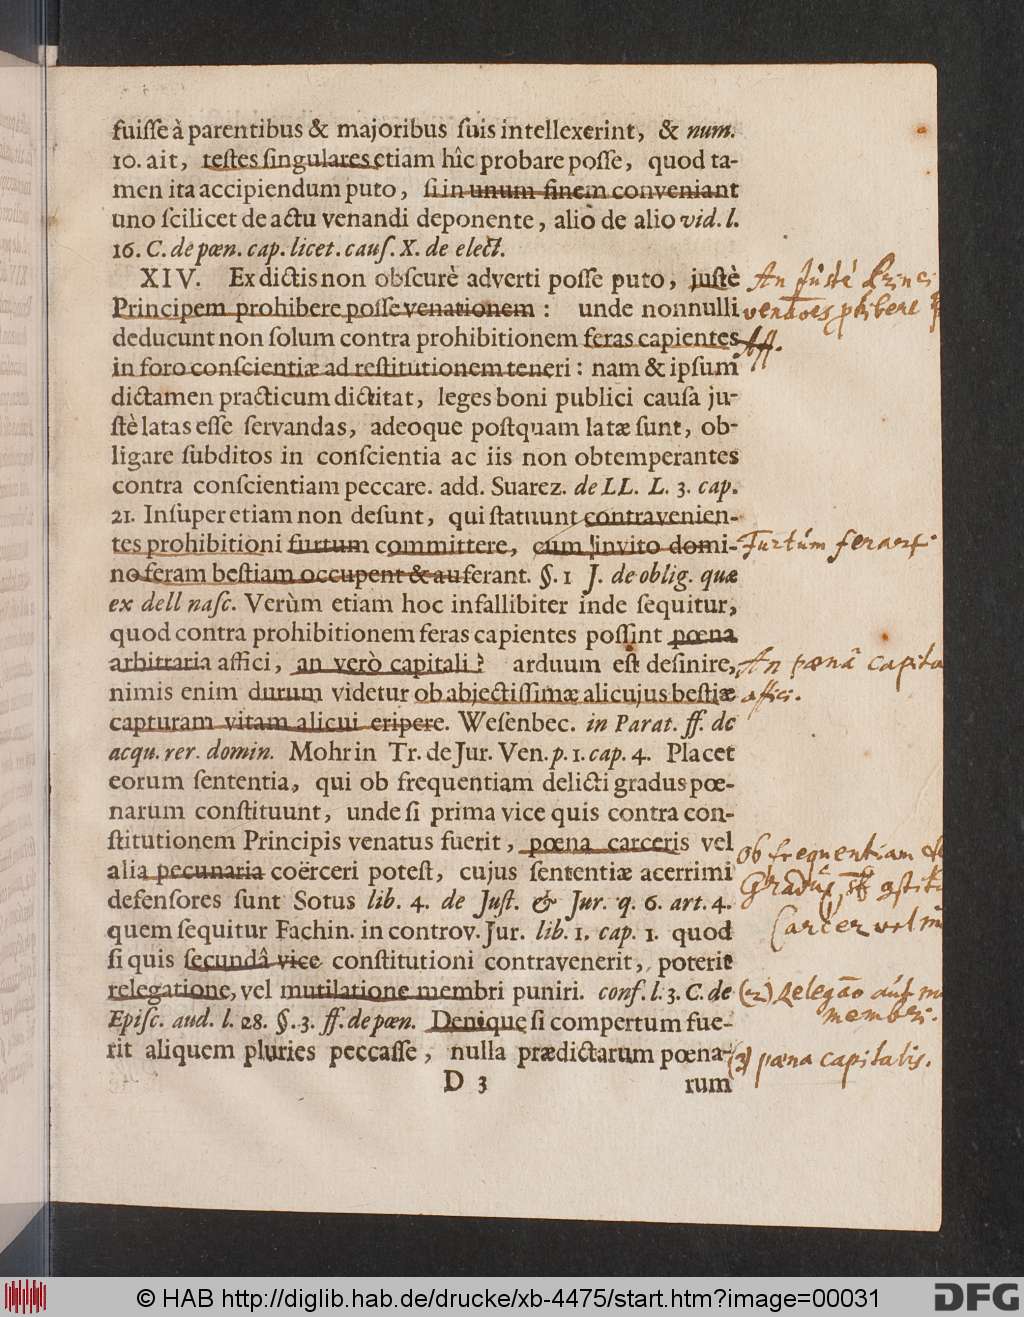 fuiſſe à parentibus & majoribus ſuis intellexerint, & num.
10. ait, teſtes ſingulares etiam hîc probare poſſe, quod ta-
men ita accipiendum puto, ſi in unum finem conveniant
uno ſcilicet de actu venandi deponente, alio de alio vid. l.
16. C. de pœn. cap. licet. cauſ. X. de elect.
XIV. Ex dictis non obſcurè adverti poſſe puto, juſtè
Principem prohibere poſſe venationem: unde nonnulli
deducunt non ſolum contra prohibitionem feras capientes
in foro conſcientiæ ad reſtitutionem teneri: nam & ipſum
dictamen practicum dictitat, leges boni publici cauſa ju-
ſtè latas eſſe ſervandas, adeoque poſtquam latæ ſunt, ob-
ligare ſubditos in conſcientia ac iis non obtemperantes
contra conſcientiam peccare. add. Suarez. de LL. L. 3. cap.
21. Inſuper etiam non deſunt, qui ſtatuunt contravenien-
tes prohibitioni furtum committere, cum invito domi-
no feram beſtiam occupent & auferant. §. 1 J. de oblig. quæ
ex dell naſc. Verùm etiam hoc infallibiter inde ſequitur,
quod contra prohibitionem feras capientes poſſint pœna
arbitraria affici, an verò capitali? arduum eſt definire,
nimis enim durum videtur ob abjectiſſimæ alicujus beſtiæ
capturam vitam alicui eripere. Weſenbec. in Parat. ff. de
acqu. rer. domin. Mohr in Tr. de Jur. Ven. p. 1. cap. 4. Placet
eorum ſententia, qui ob frequentiam delicti gradus pœ-
narum conſtituunt, unde ſi prima vice quis contra con-
ſtitutionem Principis venatus fuerit, pœna carceris vel
alia pecunaria coërceri poteſt, cujus ſententiæ acerrimi
defenſores ſunt Sotus lib. 4. de Juſt. & Jur. q. 6. art. 4.
quem ſequitur Fachin. in controv. Jur. lib. 1. cap. 1. quod
ſi quis ſecundâ vice conſtitutioni contravenerit, poterit
relegatione, vel mutilatione membri puniri. conf. l. 3. C. de
Epiſc. aud. l. 28. §. 3. ff. de pœn. Denique ſi compertum fue-
rit aliquem pluries peccaſſe, nulla prædictarum pœna-
D 3 rum
An juſtè Princi
Furtum
An pœnâ capita
affici.
Ob frequentiam
Carcer vel
(2)
membri.
(3) pœna capitalis.
© HAB http://diglib.hab.de/drucke/xb-4475/start.htm?image=00031
DFG